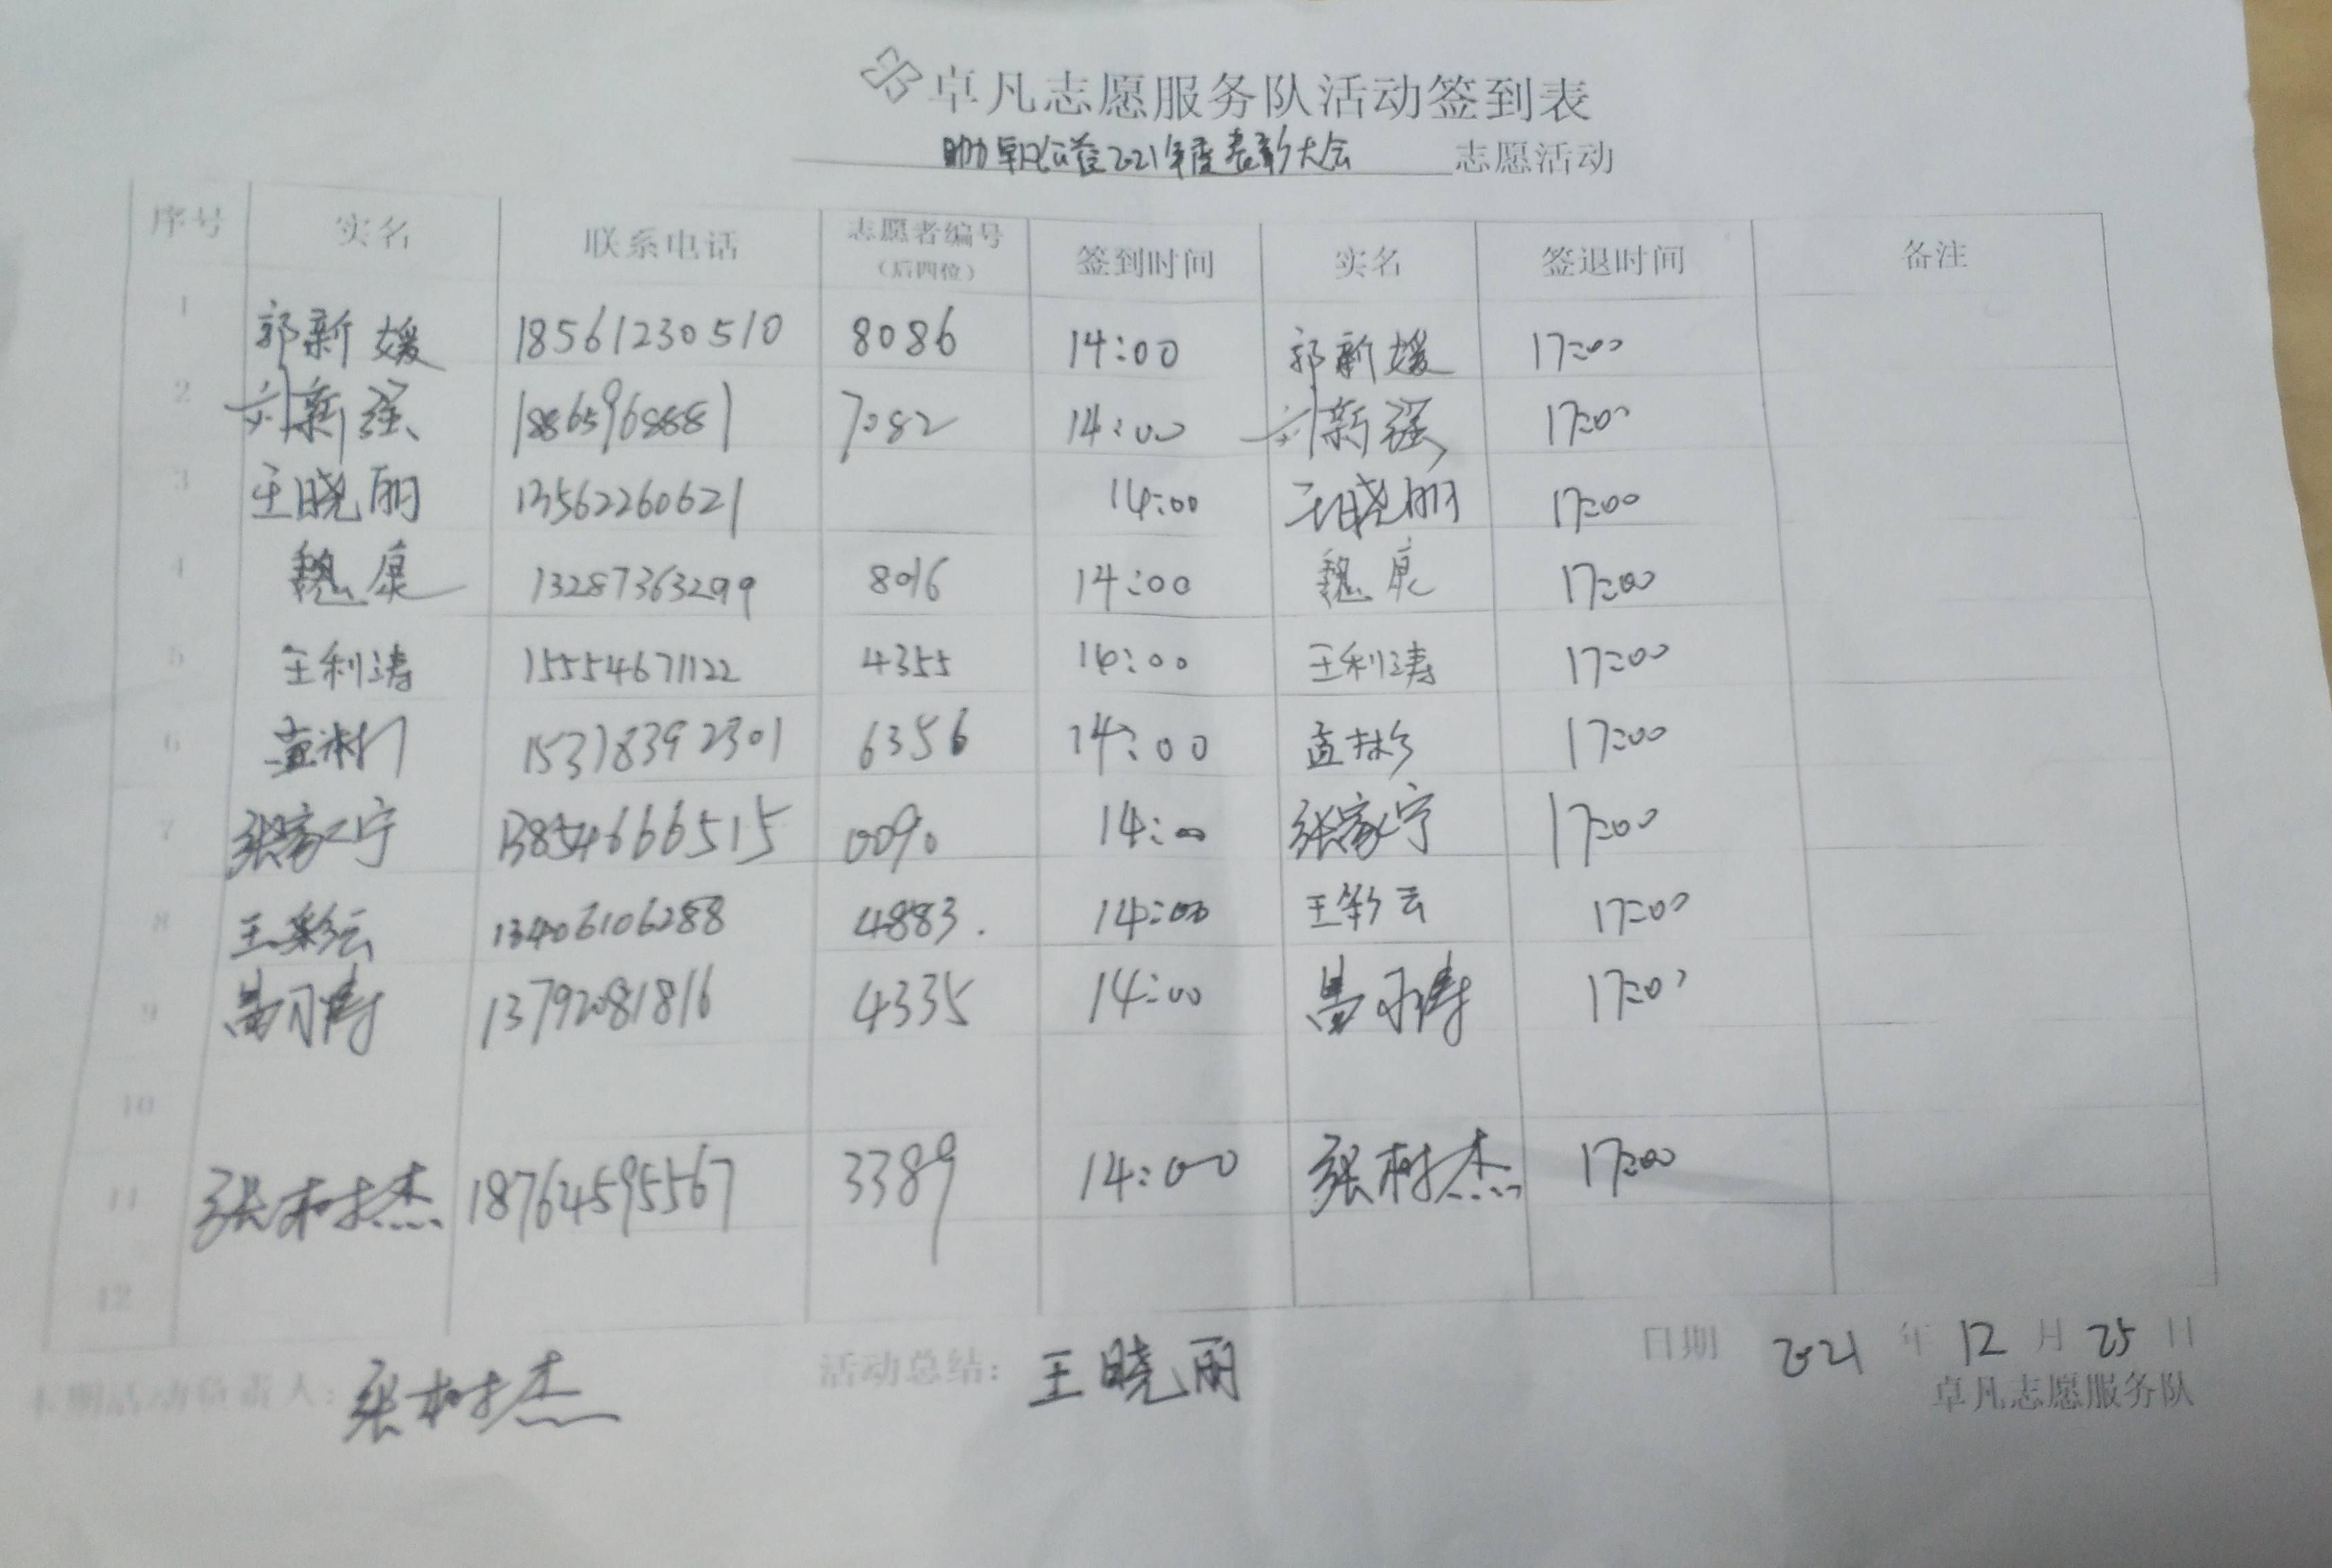 卓凡志愿服务队活动签到表
助卓凡公益2021年度表彰大会 志愿活动
序号 实名 联系电话 志愿者编号（后四位） 签到时间 实名 签退时间 备注
1 郭新媛 18561230510 8086 14:00 郭新媛 17:00
2 刘新强 18659688881 7082 14:00 刘新强 17:00
3 王晓丽 13562260621 14:00 王晓丽 17:00
4 魏康 13287363299 8016 14:00 魏康 17:00
5 王利涛 15554671122 4355 14:00 王利涛 17:00
6 15318392301 6356 14:00 17:00
7 张家宁 13854666515 0090 14:00 张家宁 17:00
8 王彩云 13406106288 4883. 14:00 王彩云 17:00
9 13792081816 4335 14:00 17:00
10
11 张树杰 18764595567 3389 14:00 张树杰 17:00
12
本期活动负责人：张树杰 活动总结：王晓丽 日期 2021年12月25日
卓凡志愿服务队